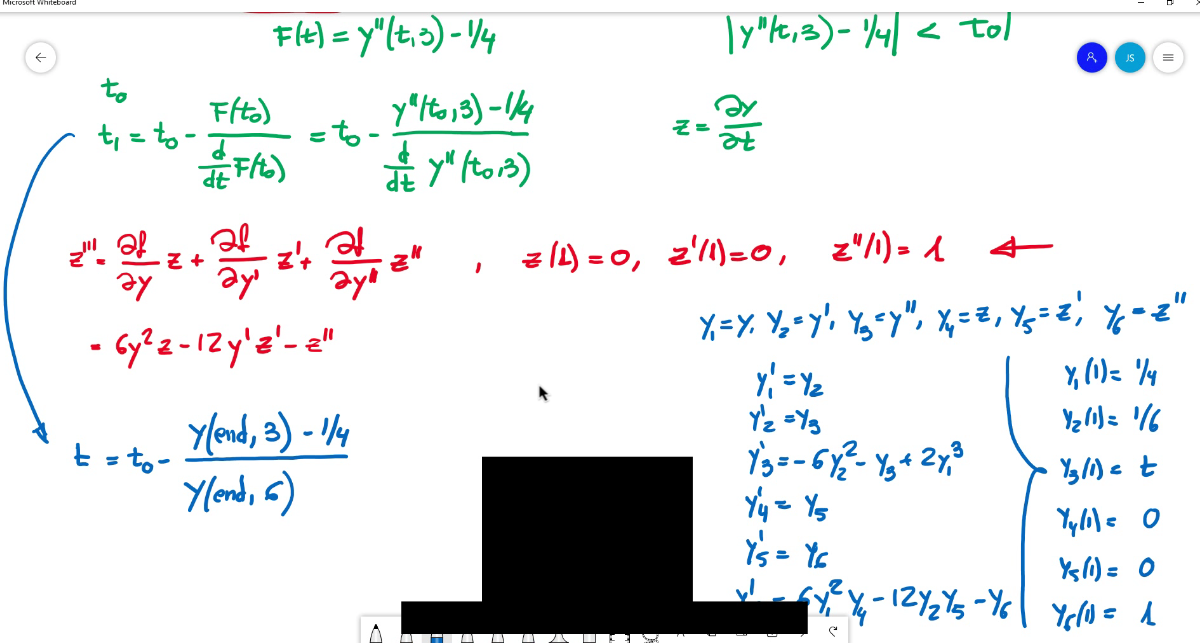 Microsoft Whiteboard
F(t) = y''(t,3) - 1/4
|y''(t,3) - 1/4| < tol
JS
t₀
t₁ = t₀ - F(t₀) / (d/dt F(t₀)) = t₀ - (y''(t₀,3) - 1/4) / (d/dt y''(t₀,3))
z = ∂y/∂t
z''' = ∂f/∂y z + ∂f/∂y' z' + ∂f/∂y'' z'' , z(1) = 0, z'(1) = 0, z''(1) = 1
= 6y² z - 12y' z' - z''
y₁ = y, y₂ = y', y₃ = y'', y₄ = z, y₅ = z', y₆ = z''
y₁' = y₂
y₂' = y₃
y₃' = -6y₂² - y₃ + 2y₁³
y₄' = y₅
y₅' = y₆
= 6y₁² y₄ - 12y₂ y₅ - y₆
y₁(1) = 1/4
y₂(1) = 1/6
y₃(1) = t
y₄(1) = 0
y₅(1) = 0
y₆(1) = 1
t = t₀ - (y(end, 3) - 1/4) / y(end, 6)